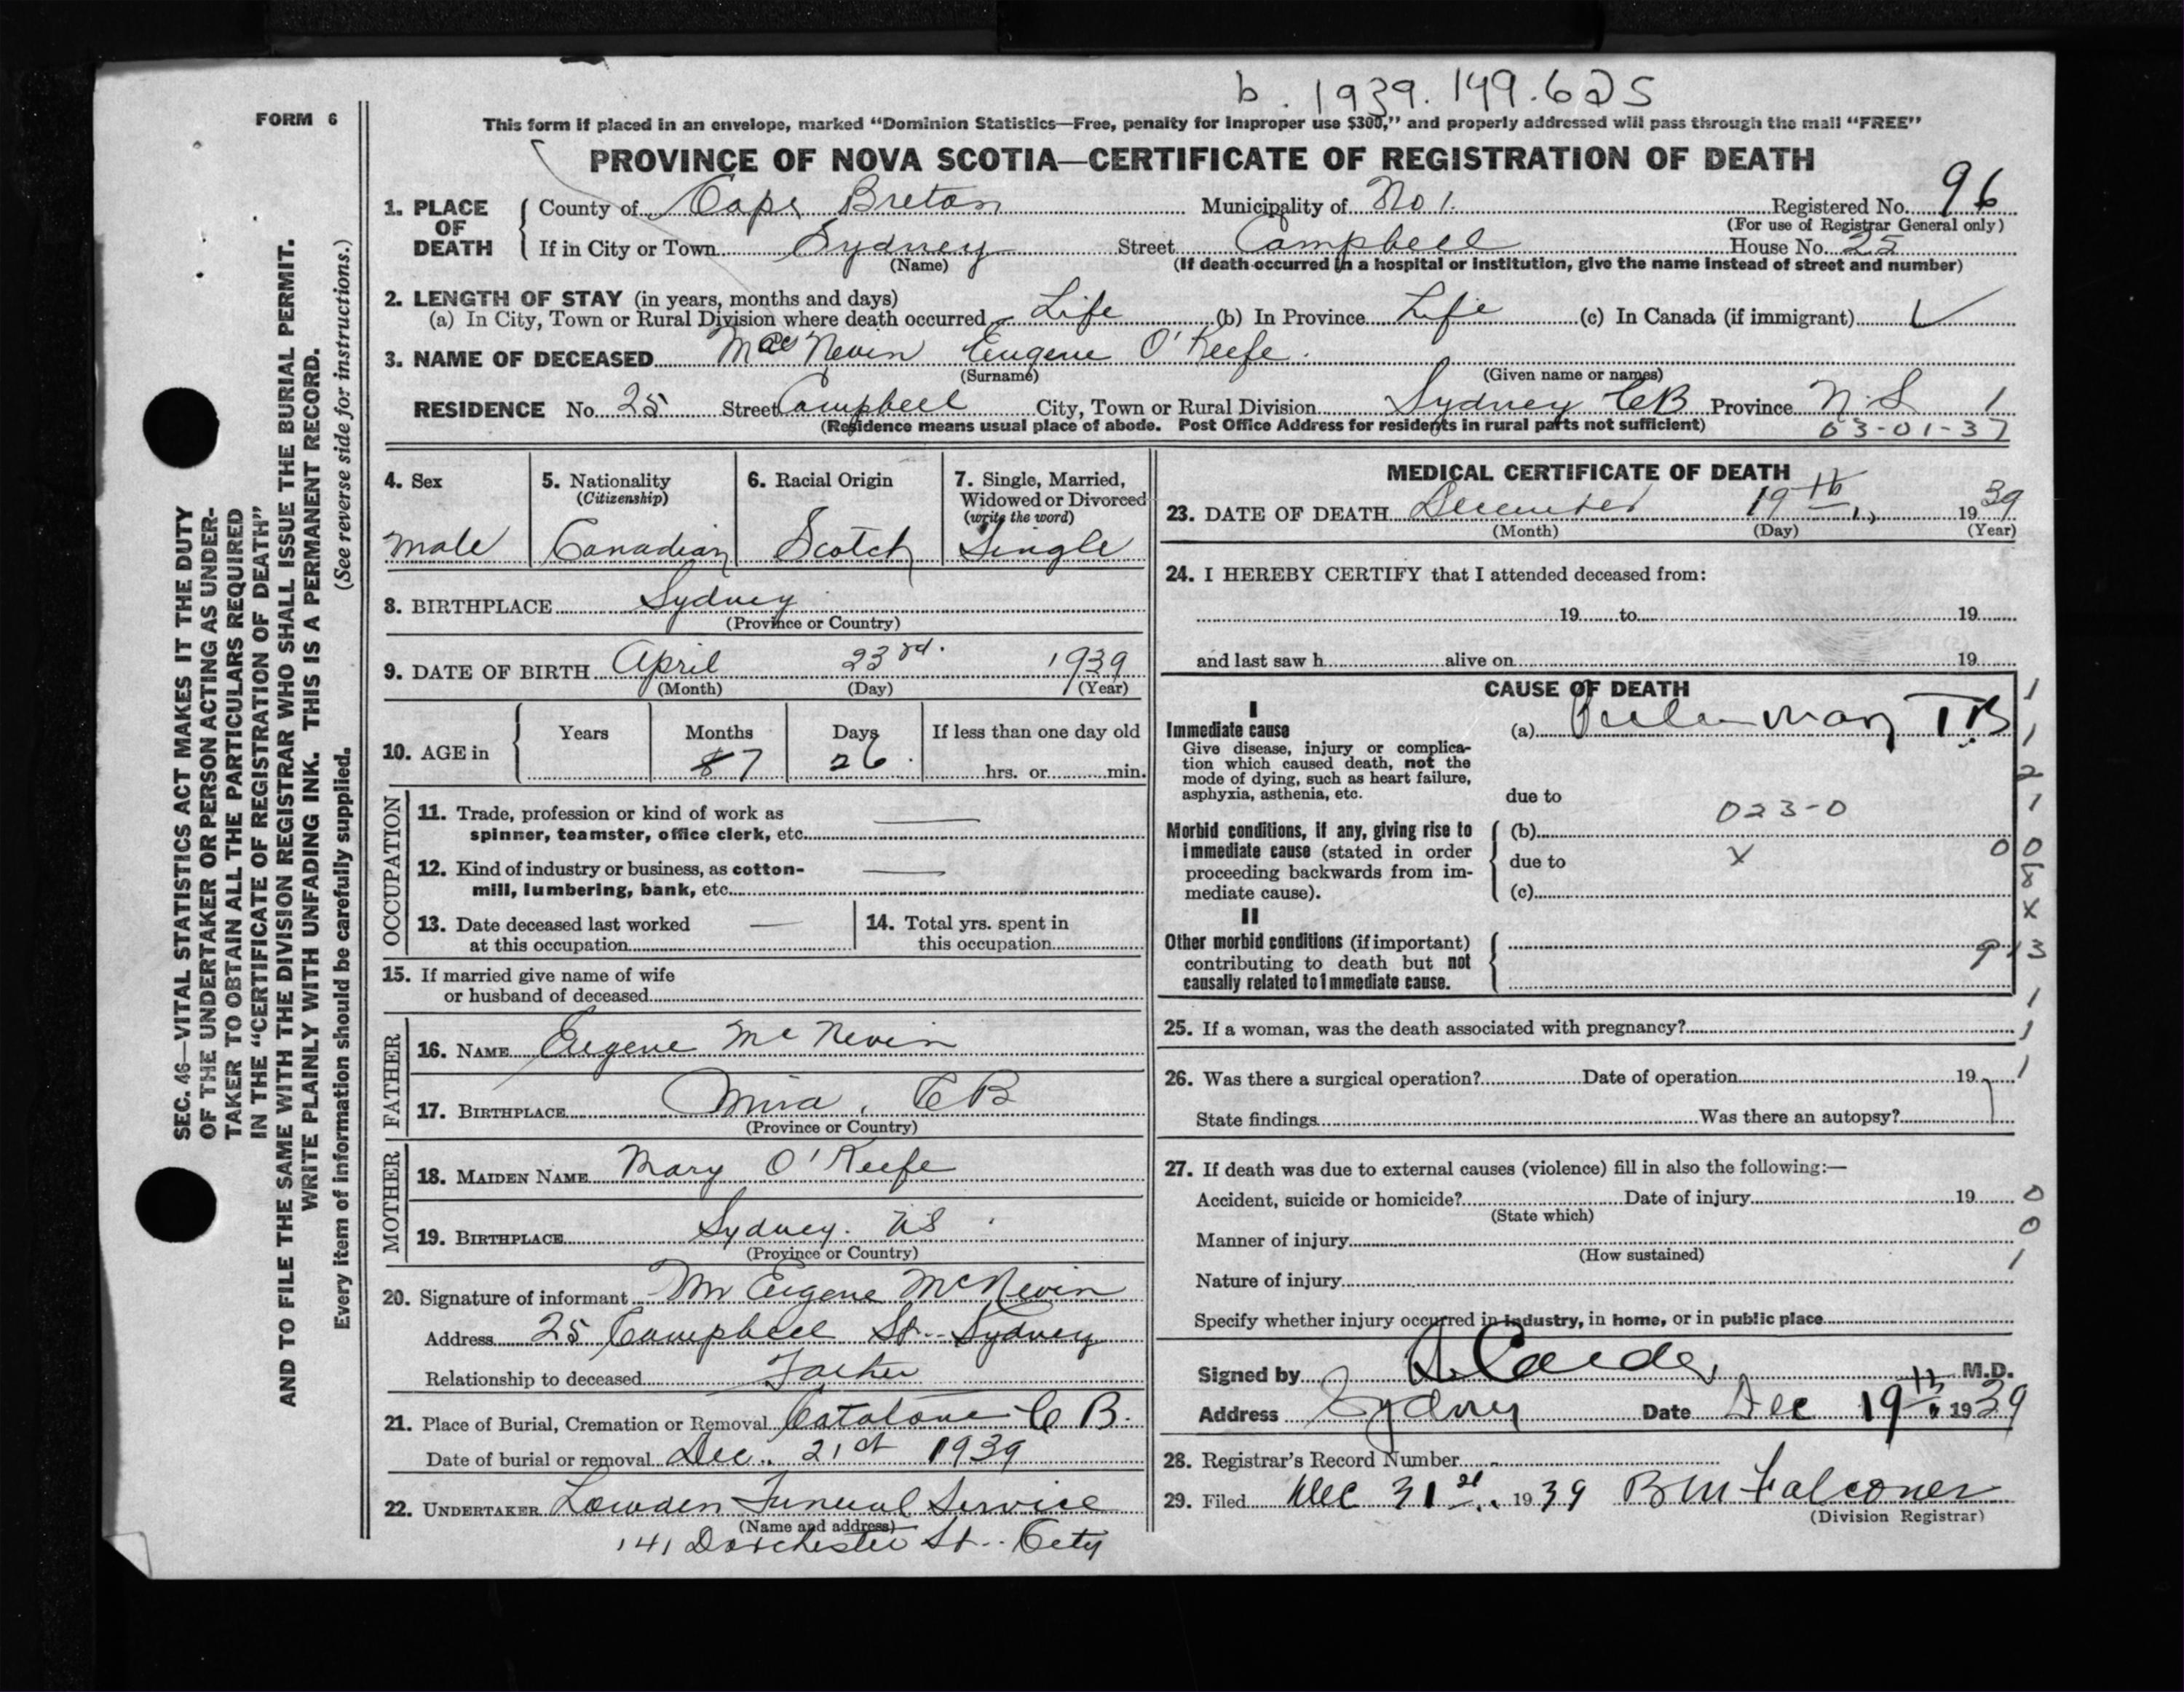 b. 1939. 149.625
FORM 6
This form if placed in an envelope, marked "Dominion Statistics—Free, penalty for improper use $300," and properly addressed will pass through the mail "FREE"
PROVINCE OF NOVA SCOTIA—CERTIFICATE OF REGISTRATION OF DEATH
1. PLACE OF DEATH County of Cape Breton Municipality of No 1. Registered No. 96
(For use of Registrar General only)
If in City or Town Sydney Street Campbell House No. 25
(Name) (If death occurred in a hospital or institution, give the name instead of street and number)
2. LENGTH OF STAY (in years, months and days)
(a) In City, Town or Rural Division where death occurred Life (b) In Province Life (c) In Canada (if immigrant)
3. NAME OF DECEASED MacNevin Eugene O'Keefe.
(Surname) (Given name or names)
RESIDENCE No. 25 Street Campbell City, Town or Rural Division Sydney CB Province N.S 1
(Residence means usual place of abode. Post Office Address for residents in rural parts not sufficient) 03-01-37
4. Sex male
5. Nationality (Citizenship) Canadian
6. Racial Origin Scotch
7. Single, Married, Widowed or Divorced (write the word) Single
8. BIRTHPLACE Sydney
(Province or Country)
9. DATE OF BIRTH April 23rd. 1939
(Month) (Day) (Year)
10. AGE in Years Months Days If less than one day old
87 26. hrs. or min.
OCCUPATION
11. Trade, profession or kind of work as
spinner, teamster, office clerk, etc. —
12. Kind of industry or business, as cotton-
mill, lumbering, bank, etc. —
13. Date deceased last worked
at this occupation —
14. Total yrs. spent in
this occupation
15. If married give name of wife
or husband of deceased
FATHER
16. NAME Eugene McNevin
17. BIRTHPLACE Mira, CB
(Province or Country)
MOTHER
18. MAIDEN NAME Mary O'Keefe
19. BIRTHPLACE Sydney. NS.
(Province or Country)
20. Signature of informant Mr Eugene McNevin
Address 25 Campbell St. Sydney
Relationship to deceased Father
21. Place of Burial, Cremation or Removal Catalone C B.
Date of burial or removal Dec. 21st 1939
22. UNDERTAKER Lowden Funeral Service
(Name and address)
141 Dorchester St. City
MEDICAL CERTIFICATE OF DEATH
23. DATE OF DEATH December 19th, 1939
(Month) (Day) (Year)
24. I HEREBY CERTIFY that I attended deceased from:
19 to 19
and last saw h alive on 19
CAUSE OF DEATH
I
Immediate cause (a) Pulmonary T.B
Give disease, injury or complica-
tion which caused death, not the
mode of dying, such as heart failure,
asphyxia, asthenia, etc.
due to
023-0
Morbid conditions, if any, giving rise to (b)
immediate cause (stated in order due to X 0
proceeding backwards from im-
mediate cause). (c)
II
Other morbid conditions (if important)
contributing to death but not
causally related to immediate cause.
1
1
2
1
0
8
X
913
1
1
1
25. If a woman, was the death associated with pregnancy?
26. Was there a surgical operation? Date of operation 19
State findings Was there an autopsy?
27. If death was due to external causes (violence) fill in also the following:—
Accident, suicide or homicide? Date of injury 19 0
(State which)
Manner of injury 0
(How sustained)
Nature of injury 1
Specify whether injury occurred in industry, in home, or in public place
Signed by M.D.
Address Sydney Date Dec 19th, 1939
28. Registrar's Record Number
29. Filed Dec 31st, 1939 BM Falconer
(Division Registrar)
SEC. 46—VITAL STATISTICS ACT MAKES IT THE DUTY
OF THE UNDERTAKER OR PERSON ACTING AS UNDER-
TAKER TO OBTAIN ALL THE PARTICULARS REQUIRED
IN THE "CERTIFICATE OF REGISTRATION OF DEATH"
AND TO FILE THE SAME WITH THE DIVISION REGISTRAR WHO SHALL ISSUE THE BURIAL PERMIT.
WRITE PLAINLY WITH UNFADING INK. THIS IS A PERMANENT RECORD.
Every item of information should be carefully supplied. (See reverse side for instructions.)